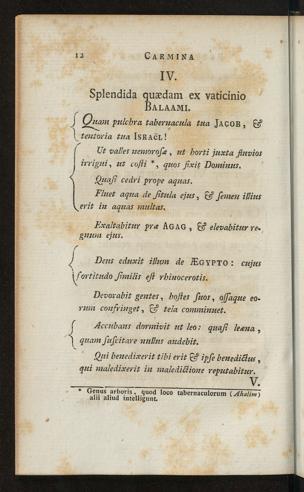 12 CARMINA
IV.
Splendida quædam ex vaticinio
BALAAMI.
Quam pulchra tabernacula tua JACOB, &
tentoria tua ISRAËL!
Ut valles nemorosæ, ut horti juxta fluvios
irrigui, ut costi *, quos fixit Dominus.
Quasi cedri prope aquas.
Fluet aqua de situla ejus, & semen illius
erit in aquas multas.
Exaltabitur præ AGAG, & elevabitur re-
gnum ejus.
Deus eduxit illum de ÆGYPTO: cujus
fortitudo similis est rhinocerotis.
Devorabit gentes, hostes suos, ossaque eo-
rum confringet, & tela comminuet.
Accubans dormivit ut leo: quasi leæna,
quam suscitare nullus audebit.
Qui benedixerit tibi erit & ipse benedictus,
qui maledixerit in maledictione reputabitur.
V.
* Genus arboris, quod loco tabernaculorum (Ahalim)
alii aliud intelligunt.